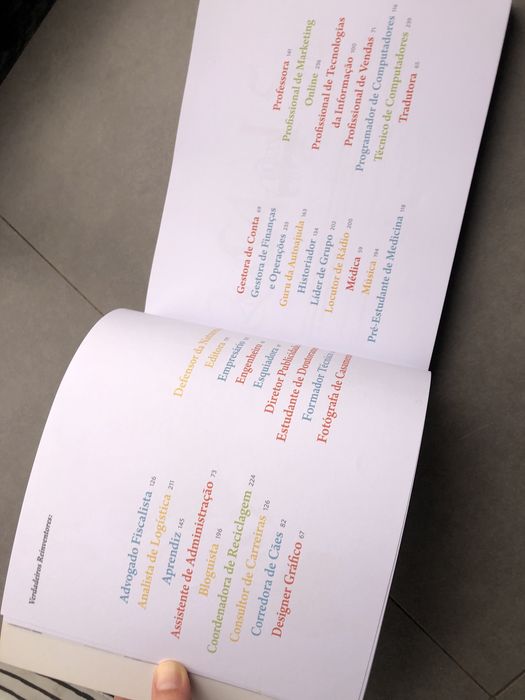 Verdadeiros Reinventores:
Advogado Fiscalista 126
Analista de Logística 211
Aprendiz 145
Assistente de Administração 73
Bloguista 196
Coordenadora de Reciclagem 224
Consultor de Carreiras 126
Corredora de Cães 82
Designer Gráfico 67
Defensor da
Editora
Empresário
Engenheiro
Esquiadora
Diretor
Estudante de
Formador Técnico
Fotógrafa de
Gestora de Conta 69
Gestora de Finanças
e Operações 213
Guru da Autoajuda 163
Historiador 134
Líder de Grupo 202
Locutor de Rádio 200
Médica 59
Música 194
Pré-Estudante de Medicina 118
Professora 141
Profissional de Marketing
Online 216
Profissional de Tecnologias
da Informação 100
Profissional de Vendas 71
Programador de Computadores 116
Técnico de Computadores 230
Tradutora 65